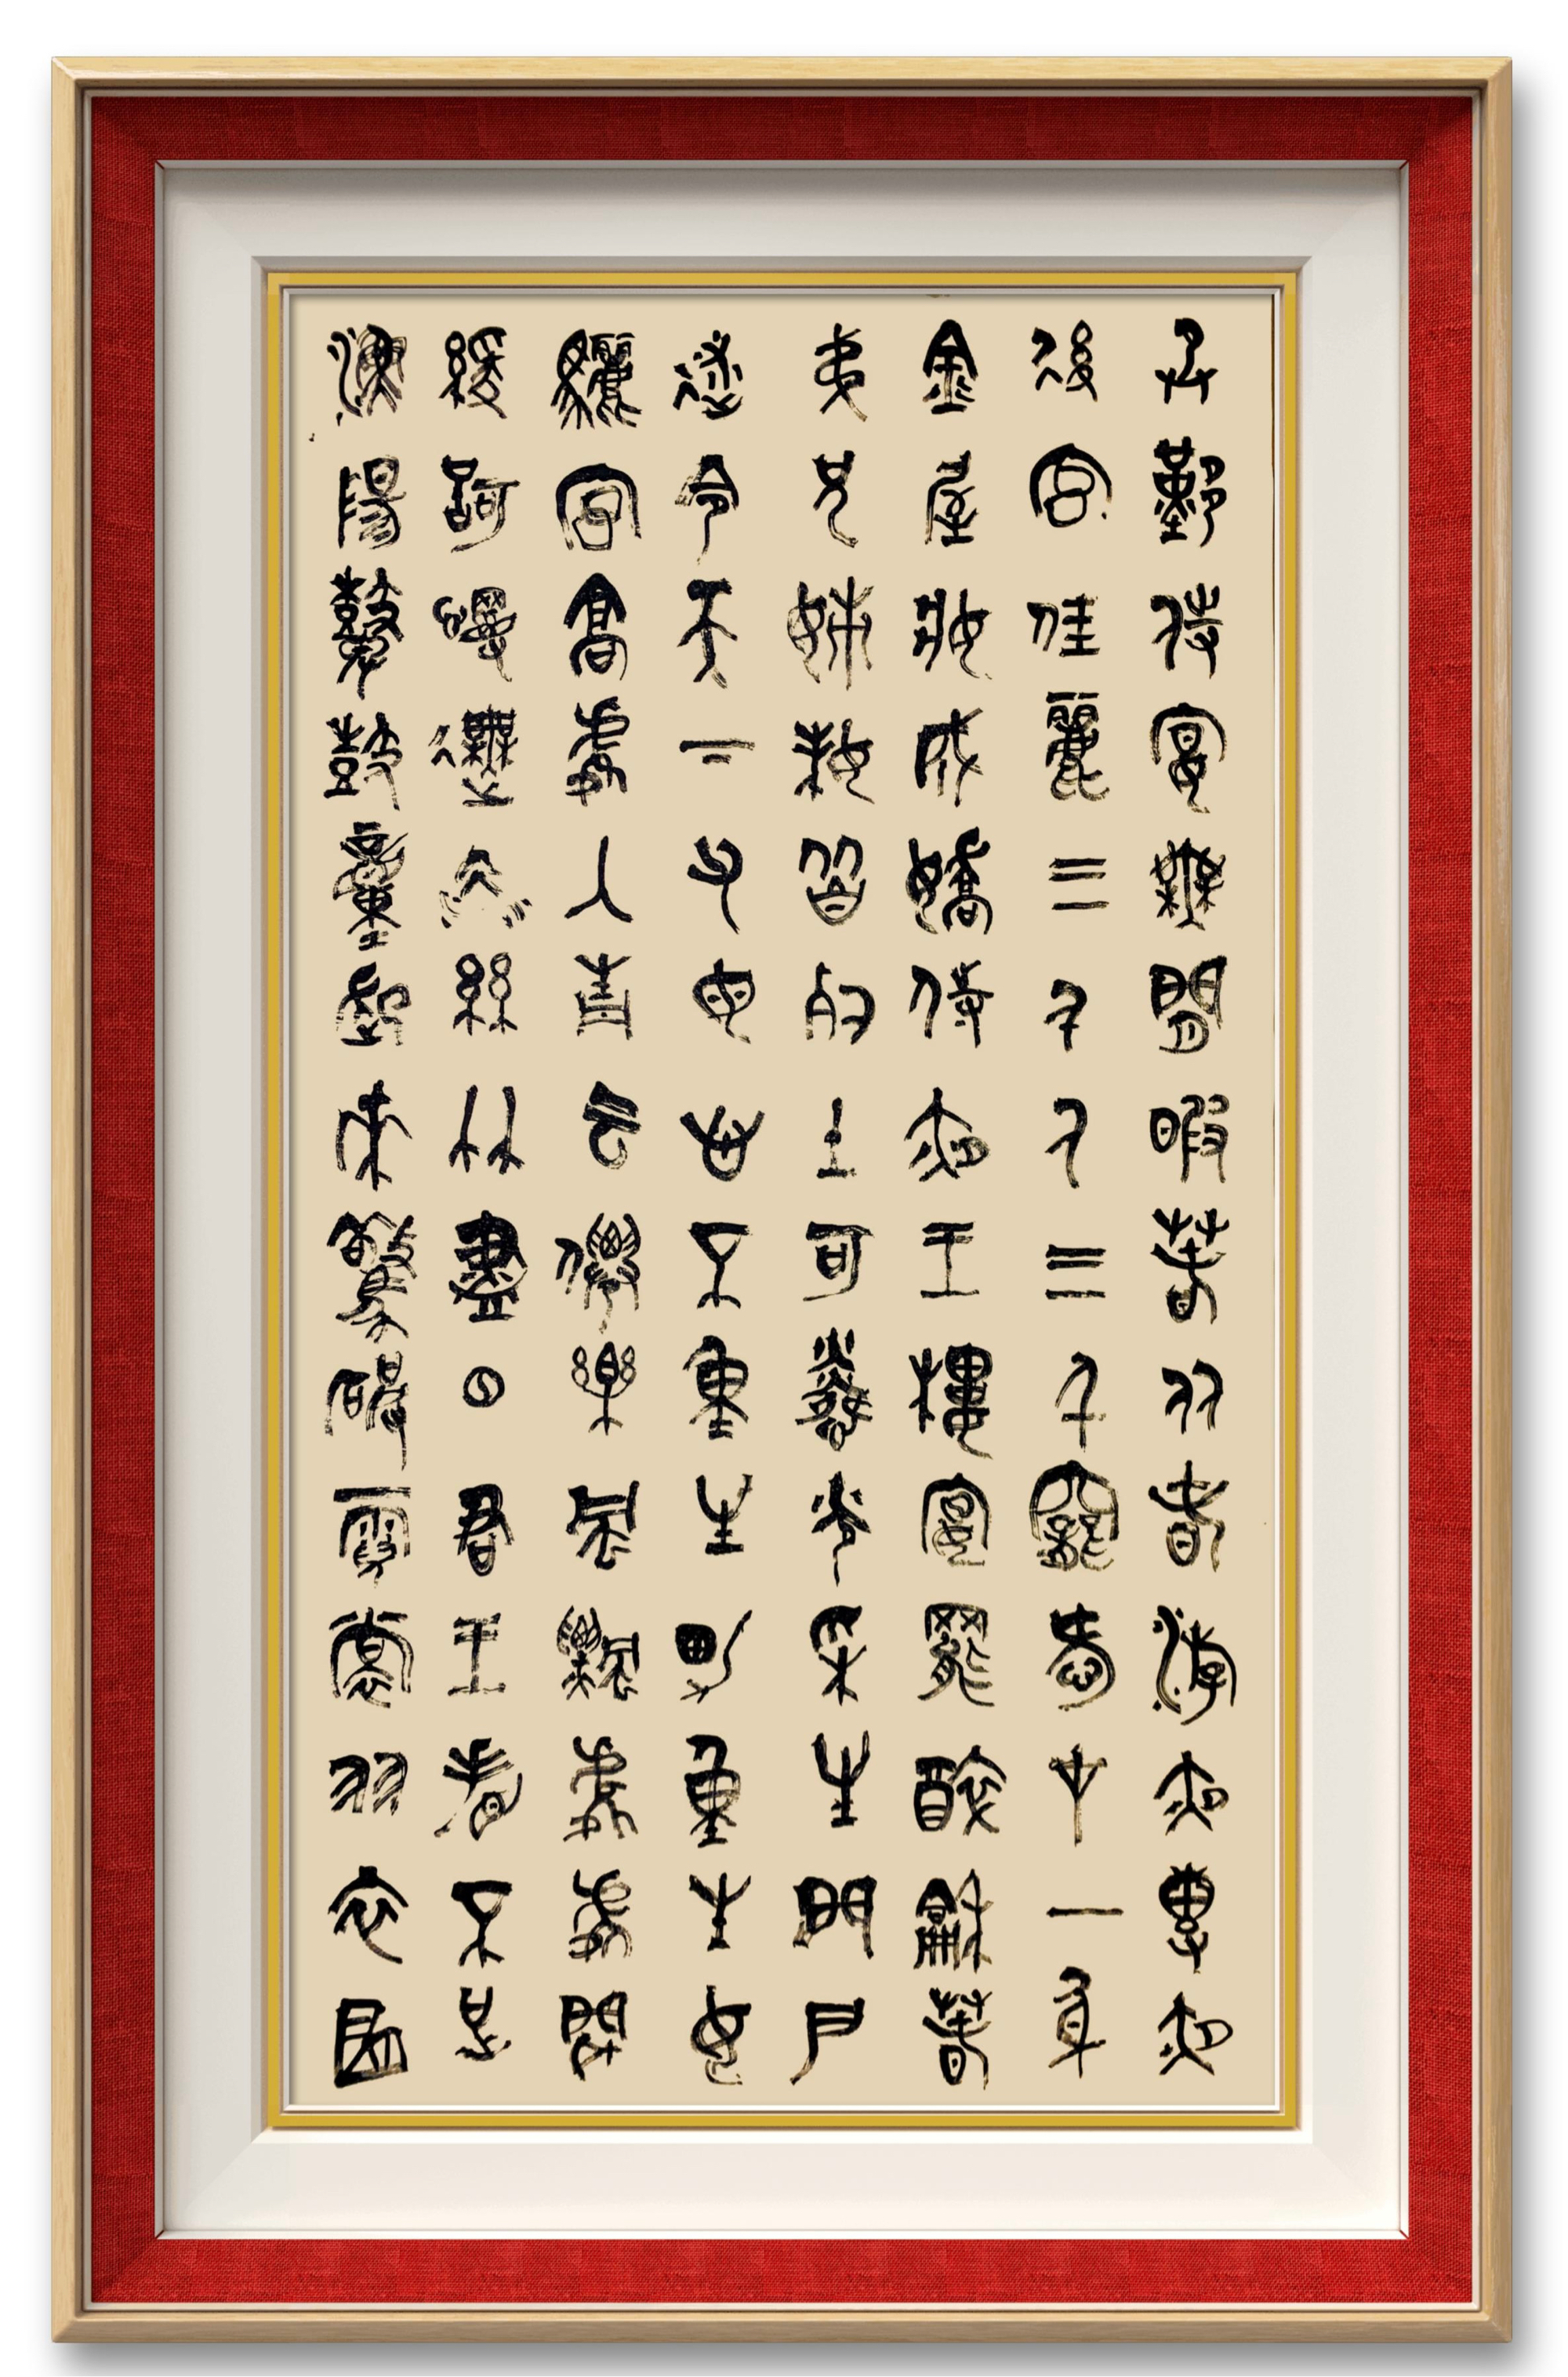 承歡侍宴無閒暇春從春遊夜專夜
後宮佳麗三千人三千寵愛在一身
金屋妝成嬌侍夜玉樓宴罷醉和春
弟兄姊妹皆列土可憐光彩生門戶
遂令天下父母心不重生男重生女
驪宮高處入青雲僊樂風飄處處聞
緩歌慢舞凝絲竹盡日君王看不足
漁陽鼙鼓動地來驚破霓裳羽衣曲